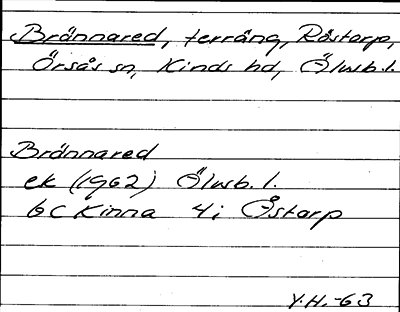 Brännared, terräng, Råstorp,
Örsås sn, Kinds hd, Älvsb. l.
Brännared
ek (1962) Älvsb. l.
6C Kinna 4i Åstarp
Y.H.-63